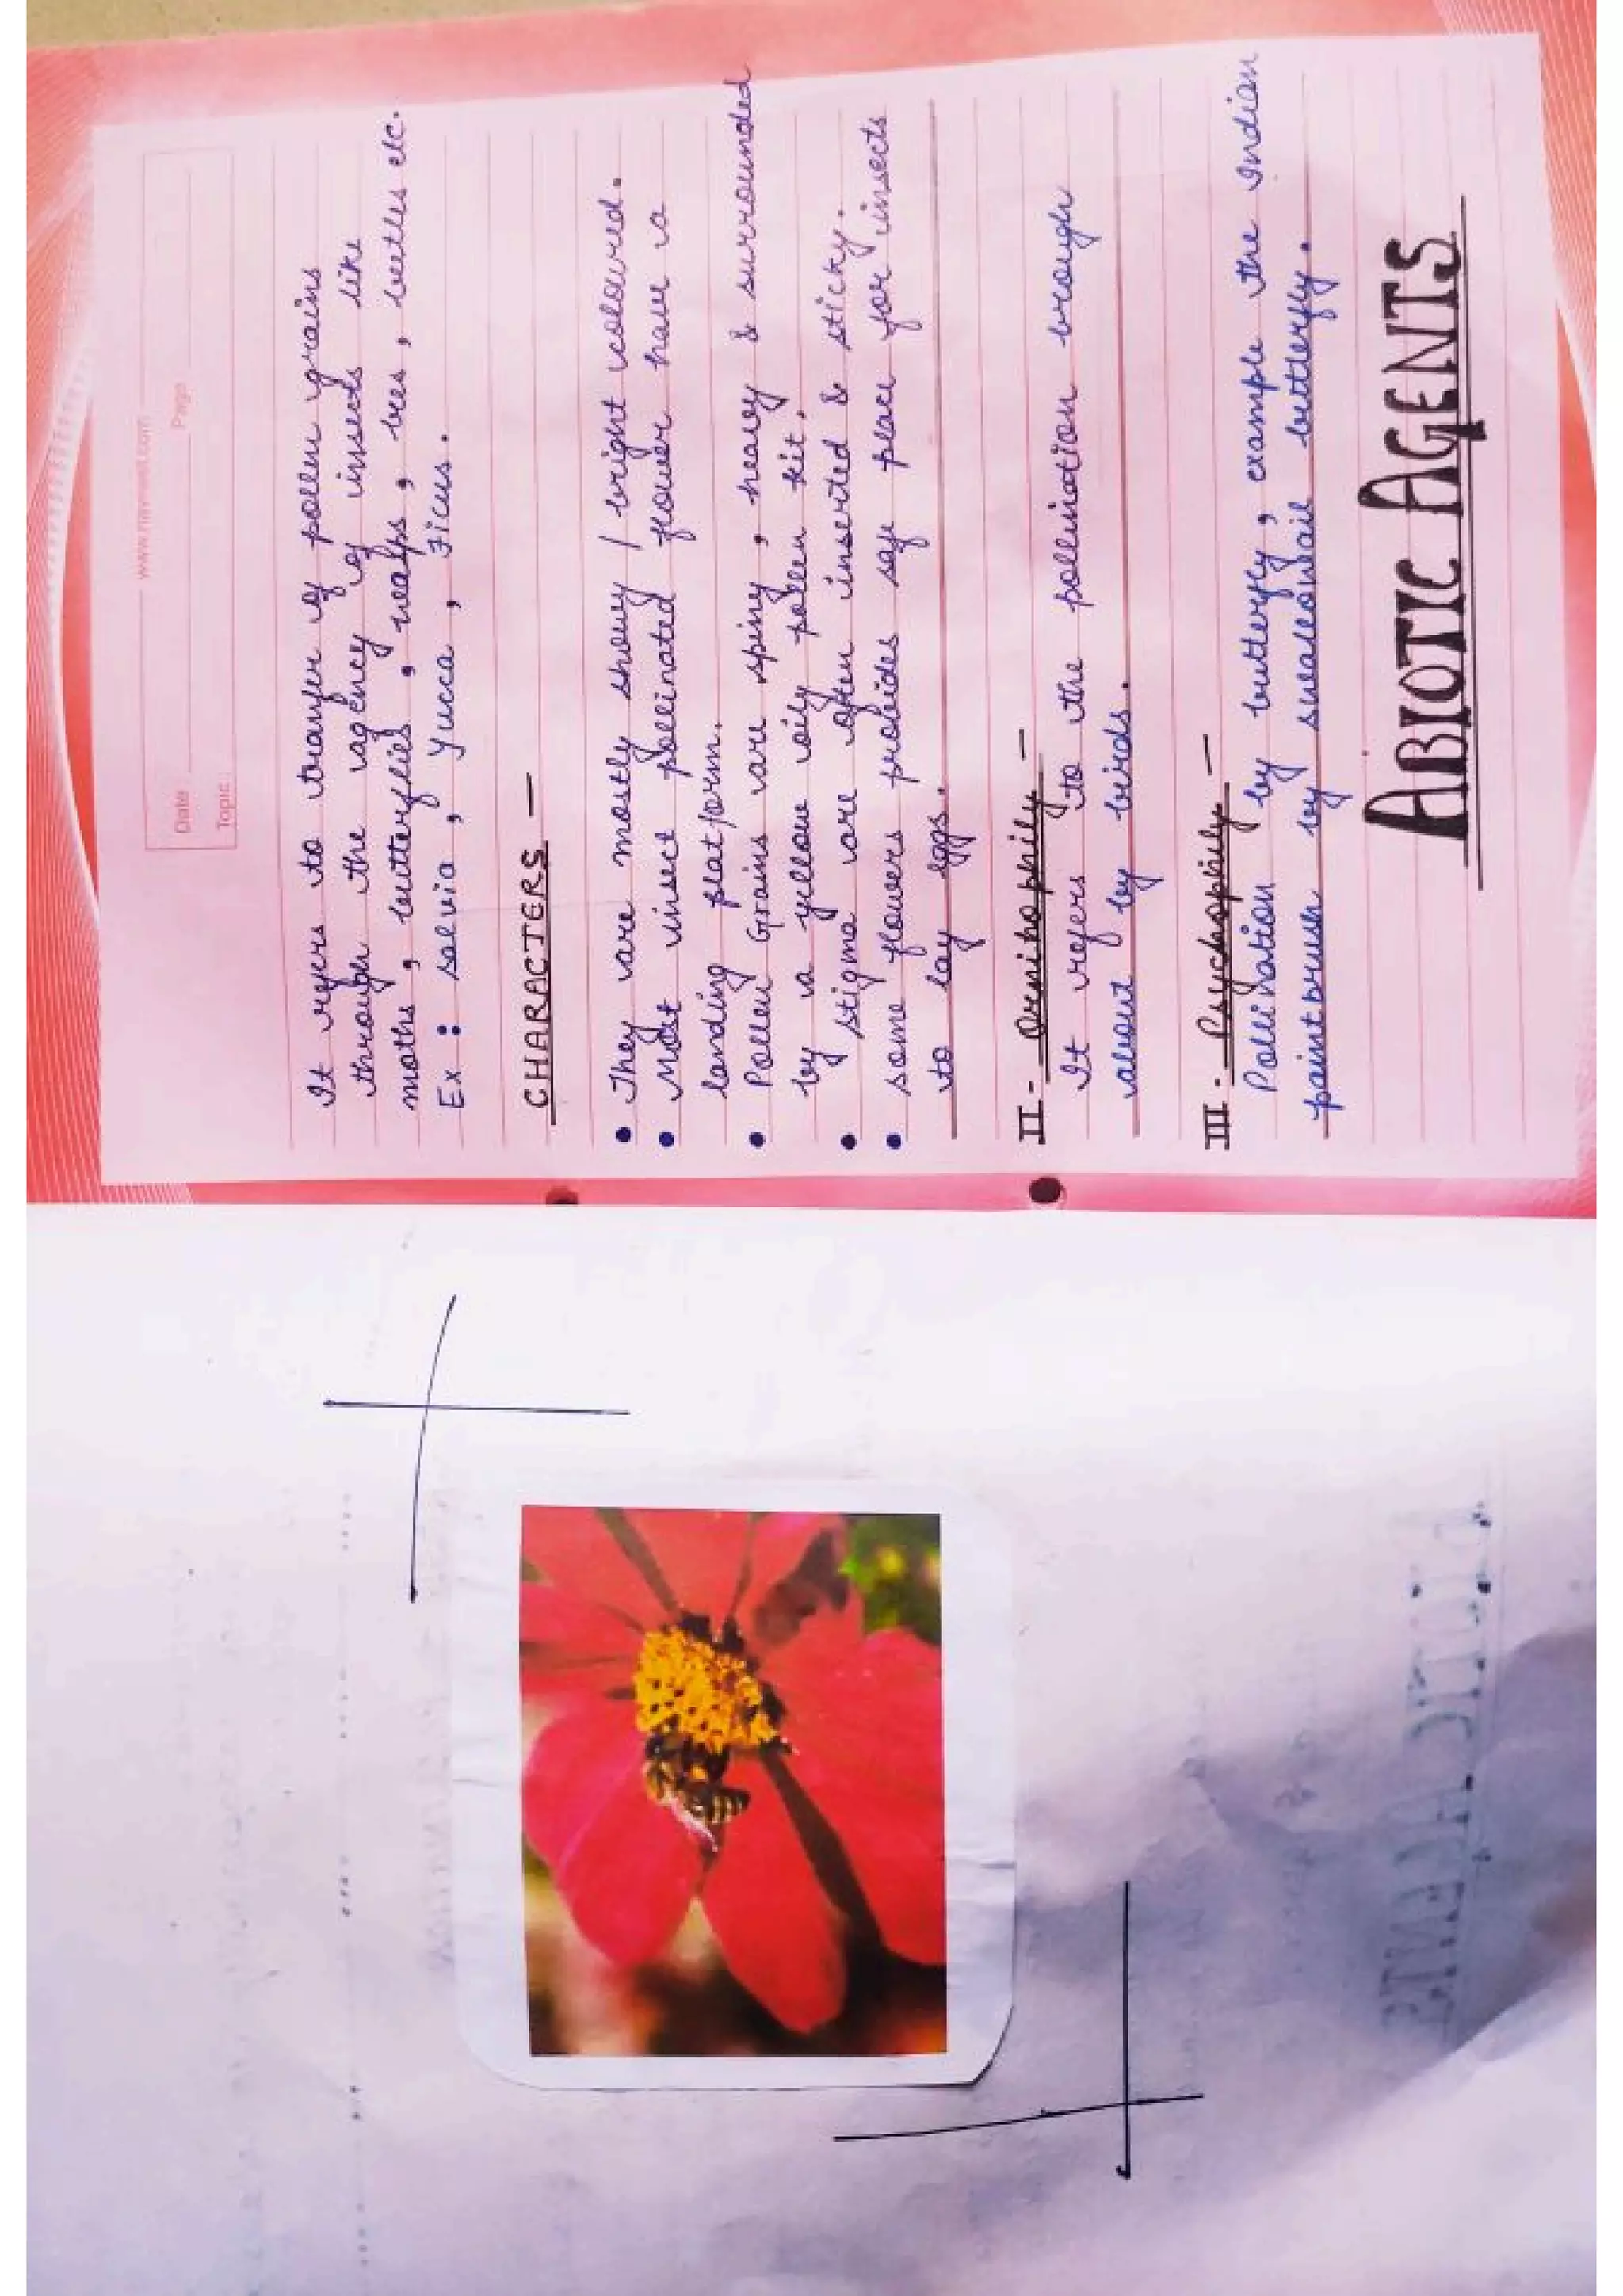 Date
Page
Topic
It refers to transfer of pollen grains
through the agency of insects like
moths, butterflies, walps, bees, beetles etc.
Ex : salvia, Yucca, Ficus.
CHARACTERS —
• They are mostly showy / bright coloured.
• Most insect pollinated flower have a
landing platform.
• Pollen Grains are spiny, heavy & surrounded
by a yellow oily pollen kit.
• stigma are often inserted & sticky.
• some flowers provides safe place for insects
to lay eggs.
II - Ornithophily —
It refers to the pollination brough
about by birds.
III - Psychophily —
Pollination by butterfly, example the Indian
paintbrush by swallowtail butterfly.
ABIOTIC AGENTS